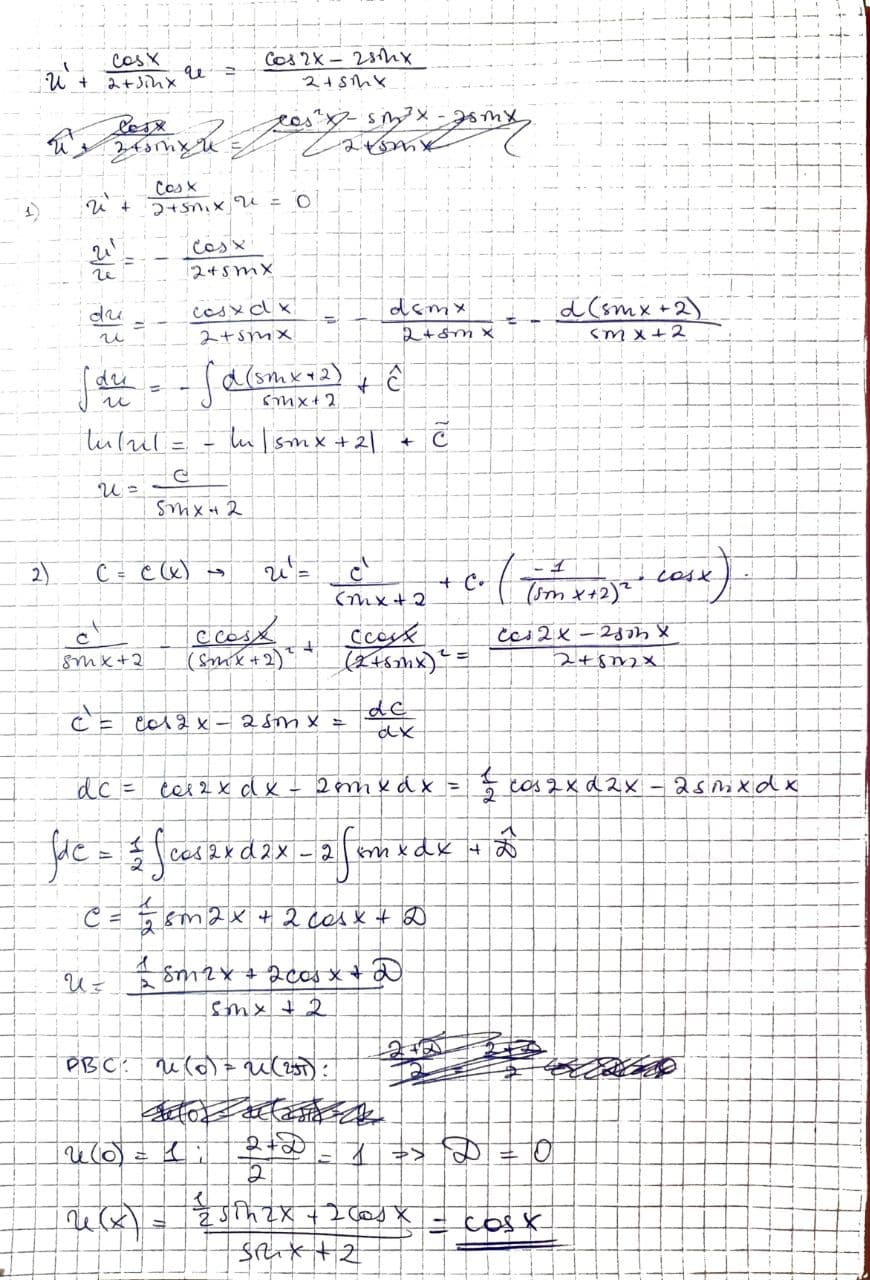 u' + cosx/(2+sinx) u = (cos2x − 2sinx)/(2+sinx)
u' + cosx/(2+sinx) u = (cos²x − sin²x − 2sinx)/(2+sinx)
1) u' + cosx/(2+sinx) u = 0
u'/u = − cosx/(2+sinx)
du/u = − cosxdx/(2+sinx) = − dsinx/(2+sinx) = − d(sinx+2)/(sinx+2)
∫du/u = − ∫d(sinx+2)/(sinx+2) + Ĉ
ln|u| = − ln|sinx+2| + C̃
u = C/(sinx+2)
2) C = C(x) → u' = C'/(sinx+2) + C·(−1/(sinx+2)² · cosx).
C'/(sinx+2) − Ccosx/(sinx+2)² + Ccosx/(2+sinx)² = (cos2x − 2sinx)/(2+sinx)
C' = cos2x − 2sinx = dC/dx
dC = cos2xdx − 2sinxdx = 1/2 cos2xd2x − 2sinxdx
∫dC = 1/2 ∫cos2xd2x − 2∫sinxdx + D̂
C = 1/2 sin2x + 2cosx + D
u = (1/2 sin2x + 2cosx + D)/(sinx + 2)
PBC: u(0) = u(2π): (2+D)/2 = (2+D)/2
u(0) = 1; (2+D)/2 = 1 => D = 0
u(x) = (1/2 sin2x + 2cosx)/(sinx + 2) = cosx